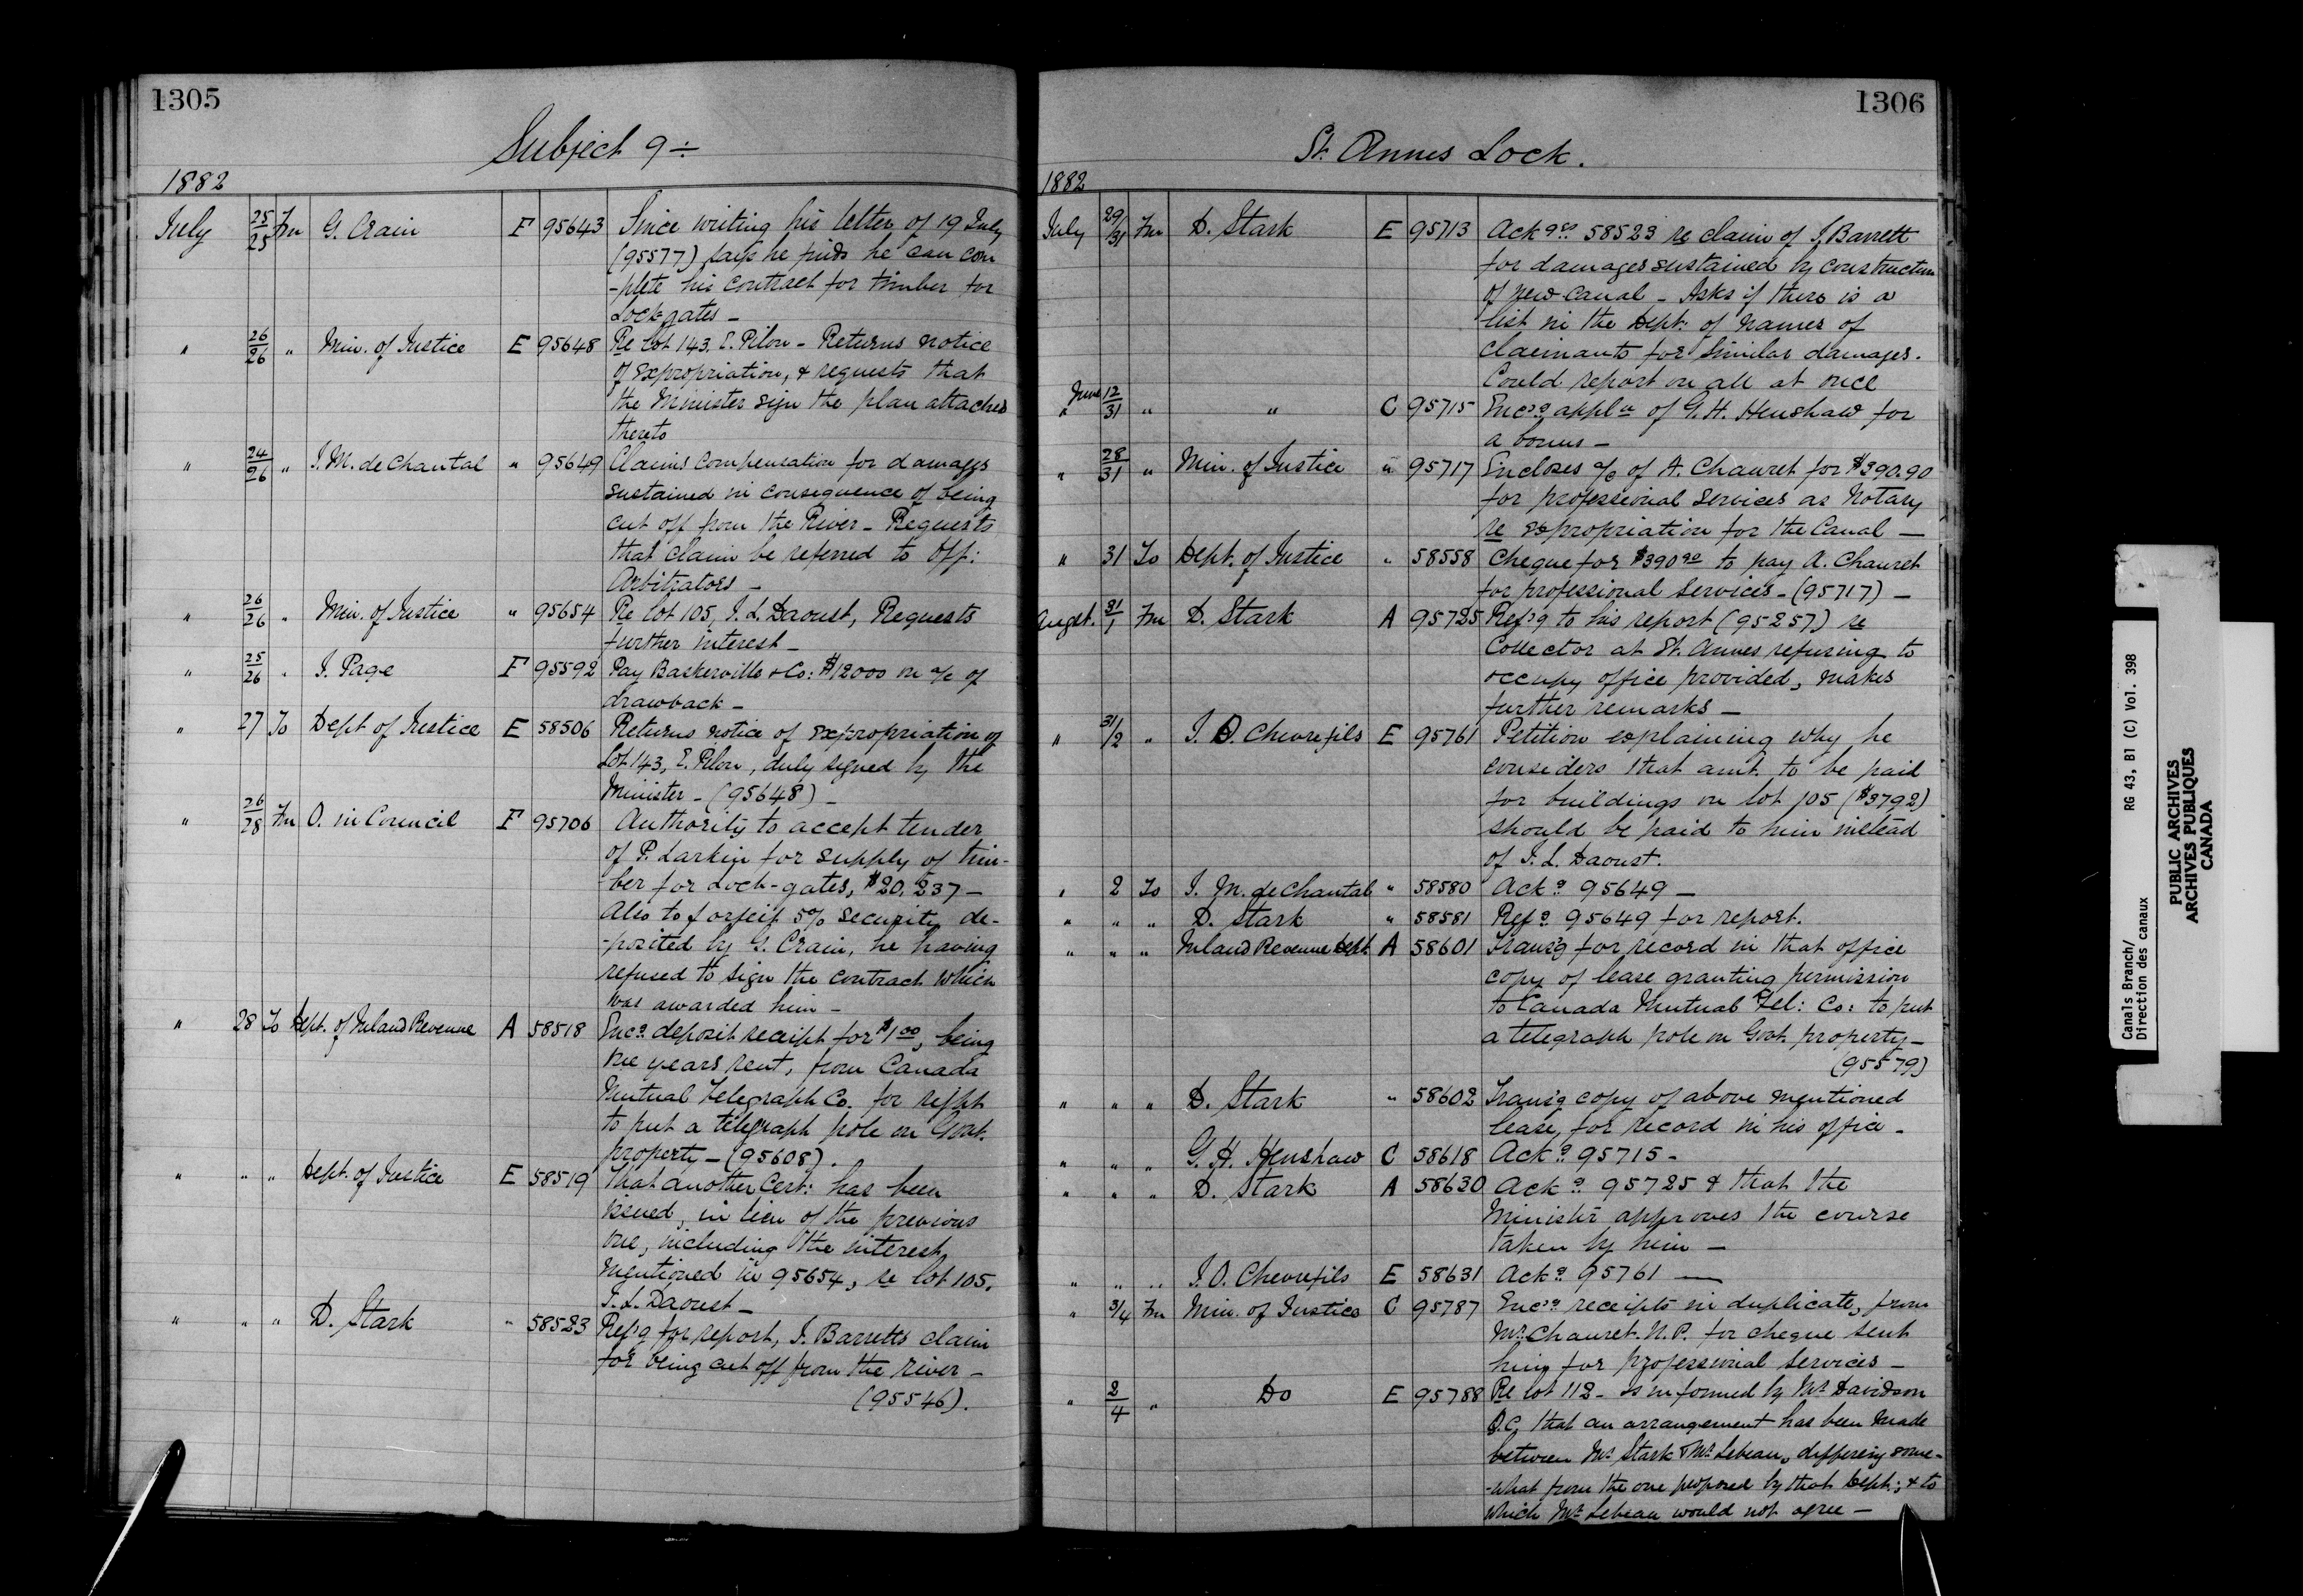 1305
Subject 9 ÷
1882
July 25/25 Fm G. Crain F 95643 Since writing his letter of 19 July
(95577) says he finds he can com
-plete his contract for timber for
Lockgates —
" 26/26 " Min. of Justice E 95648 Re Lot 143. E. Pilon - Returns notice
of expropriation, & requests that
the Minister sign the plan attached
thereto
" 24/26 " J. M. de Chantal " 95649 Claims compensation for damages
sustained in consequence of being
cut off from the River - Requests
that claim be referred to Off:
Arbitrators —
" 26/26 " Min. of Justice " 95654 Re lot 105, J. L. Daoust, Requests
further interest —
" 25/26 " J. Page F 95592 Pay Baskerville & Co: $12000 on a/c of
drawback —
" 27 To Dept of Justice E 58506 Returns notice of expropriation of
Lot 143, E. Pilon, duly signed by the
Minister - (95648) —
" 26/28 Fm O. in Council F 95706 Authority to accept tender
of P. Larkin for supply of tim-
-ber for Lock-gates, $20,237 —
Also to forfeit 5% security de-
-posited by G. Crain, he having
refused to sign the contract which
was awarded him —
" 28 To Dept. of Inland Revenue A 58518 Encg deposit receipt for $1.00, being
one years rent, from Canada
Mutual Telegraph Co. for right
to put a telegraph pole on Govt.
property - (95608).
" " " Dept. of Justice E 58519 That another Cert: has been
issued, in lieu of the previous
one, including the interest
mentioned in 95654, re lot 105,
J. L. Daoust —
" " " D. Stark " 58523 Refg for report, J. Barretts claim
for being cut off from the river —
(95546).
1306
St. Annes Lock.
1882
July 29/31 Fm D. Stark E 95713 Ackgs 58523 re claim of J. Barrett
for damages sustained by construction
of new canal - Asks if there is a
list in the Dept: of names of
claimants for similar damages.
Could report on all at once
" June 12/31 " " C 95715 Encg appln of G. H. Henshaw for
a bonus —
" 28/31 " Min. of Justice " 95717 Encloses a/c of A. Chauret for $390.90
for professional services as Notary
re expropriation for the Canal —
" 31 To Dept. of Justice " 58558 Cheque for $390.90 to pay A. Chauret
for professional services - (95717) —
Augst. 31/1 Fm D. Stark A 95725 Refg to his report (95257) re
Collector at St. Annes refusing to
occupy office provided, makes
further remarks —
" 31/2 " J. O. Chevrefils E 95761 Petition explaining why he
considers that amt. to be paid
for buildings on lot 105 ($3792)
should be paid to him instead
of J. L. Daoust.
" 2 To J. M. de Chantal " 58580 Ackg 95649 —
" " " D. Stark " 58581 Refg 95649 for report.
" " " Inland Revenue Dept A 58601 Transg for record in that office
copy of lease granting permission
to Canada Mutual Tel: Co: to put
a telegraph pole on Govt. property —
(95579)
" " " D. Stark " 58602 Transg copy of above mentioned
lease, for record in his office -
" " " G. H. Henshaw C 58618 Ackg 95715 -
" " " D. Stark A 58630 Ackg 95725 & that the
Minister approves the course
taken by him —
" " " J. O. Chevrefils E 58631 Ackg 95761 —
" 3/4 Fm Min. of Justice C 95787 Encg receipts in duplicate, from
Mr. Chauret. N. P. for cheque sent
him for professional services —
" 2/4 " Do E 95788 Re lot 112 - is informed by Mr. Davidson
Q.C. that an arrangement has been made
between Mr. Stark & Mr. Lebeau, differing some-
-what from the one proposed by that Dept; & to
which Mr. Lebeau would not agree —
Canals Branch/ RG 43, B1 (C) Vol. 398
Direction des canaux
PUBLIC ARCHIVES
ARCHIVES PUBLIQUES
CANADA